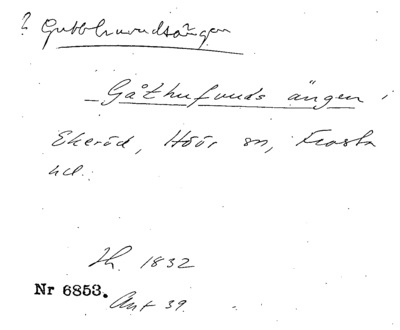 ? Gubbhundsängen
Gåthufvuds ängen i
Ekeröd, Höör sn, Frosta
hd.
Jh. 1832
Nr 6853.
Ant 39.